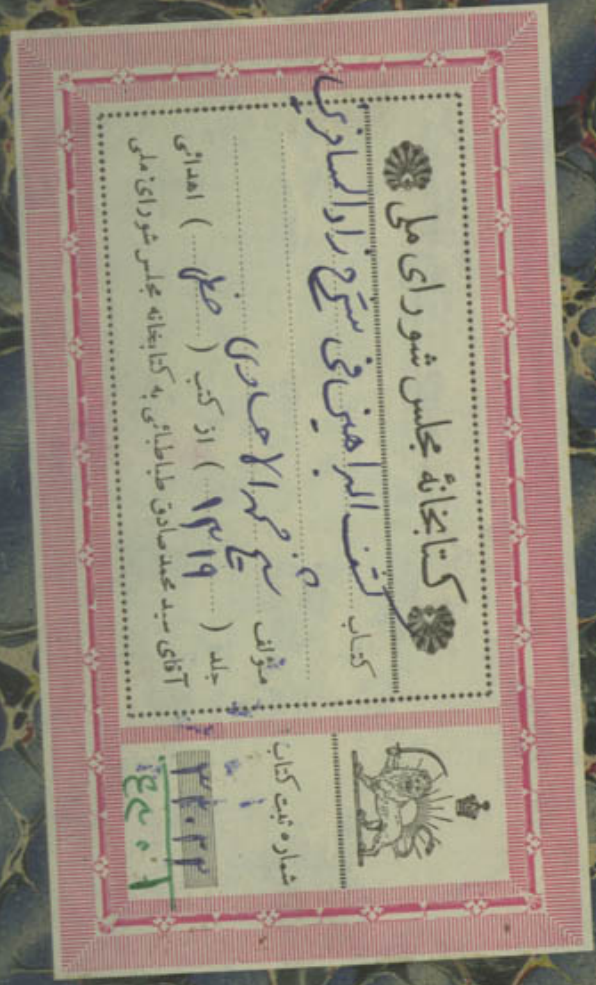 کتابخانهٔ مجلس شورای ملی
کتاب کشف البراهین فی شرح زاد المسافرین
مؤلف شیخ محمد الاحساوی
جلد (۱۳۱۹) از کتب (خطی) اهدائی
آقای سید محمد صادق طباطبائی به کتابخانه مجلس شورای ملی
شماره ثبت کتاب